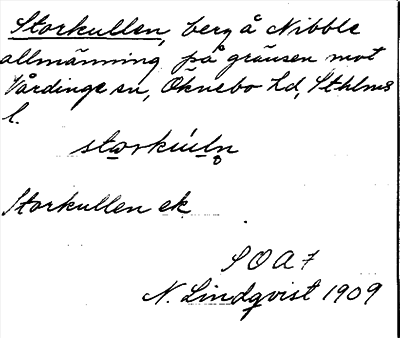 Storkullen, berg å Nibble
allmänning på gränsen mot
Vårdinge sn, Öknebo hd, Sthlms
l.
Storkullen ek
S O A 7
N. Lindqvist 1909